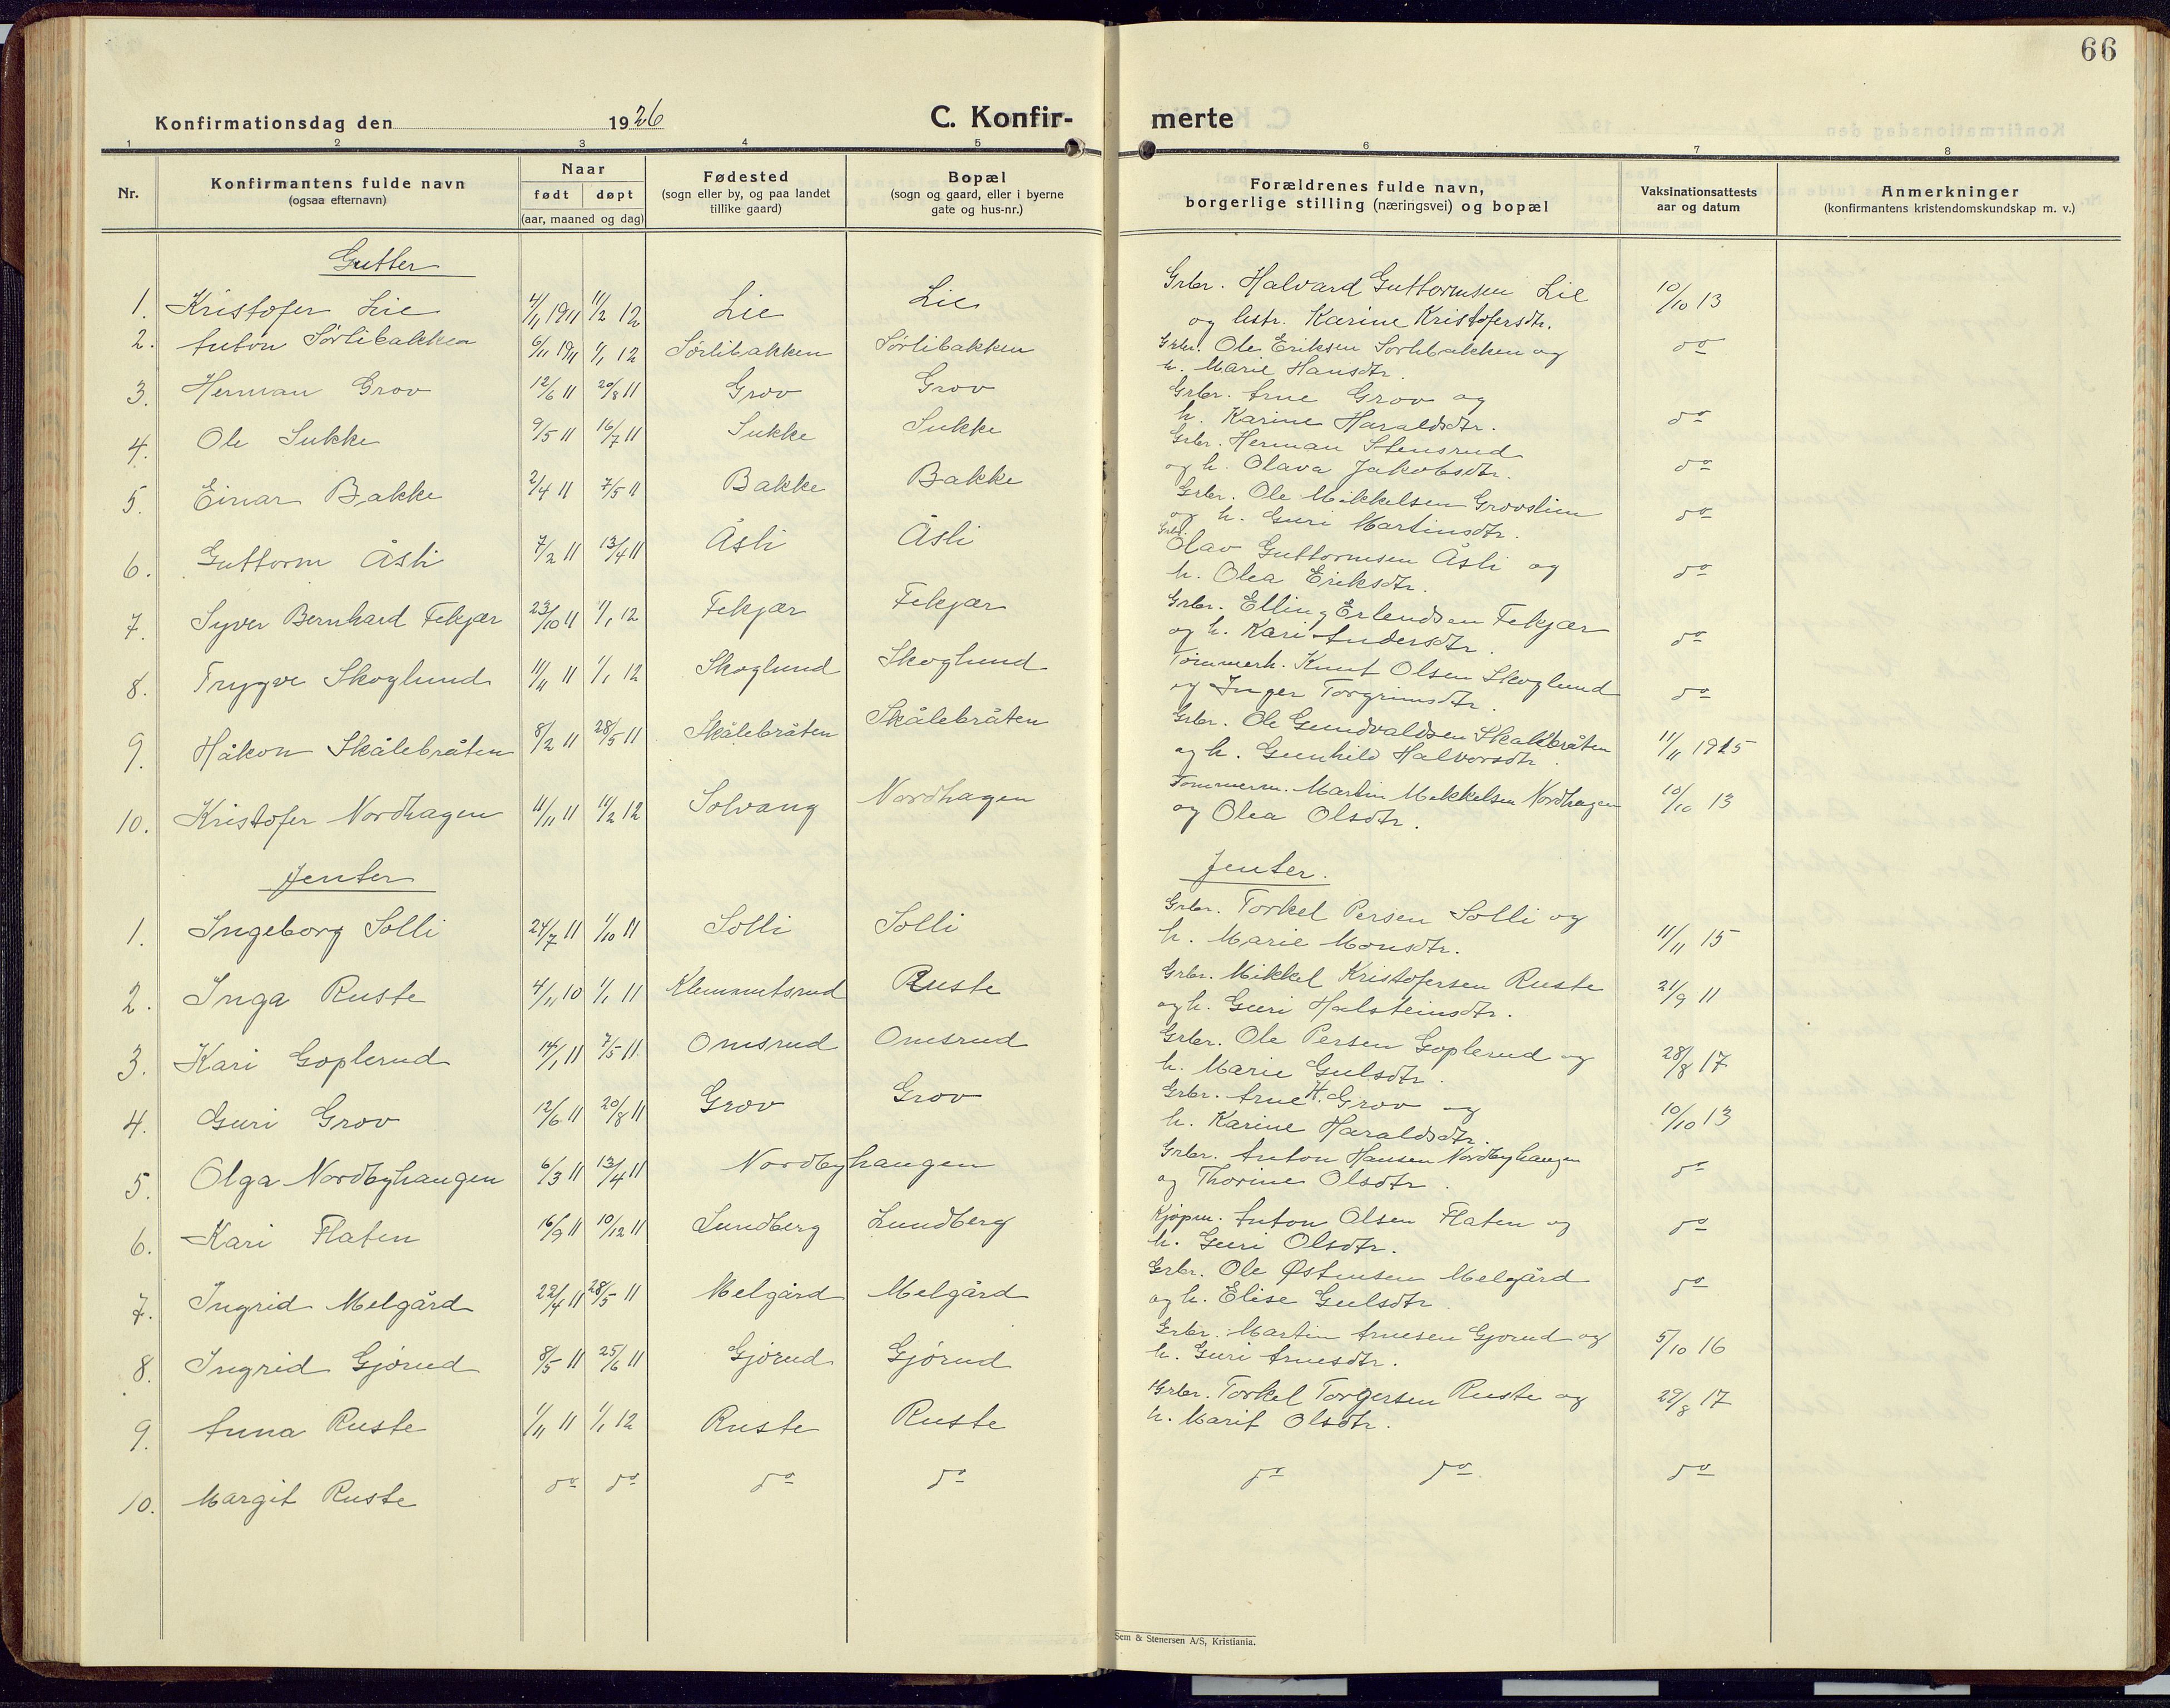 66
Konfirmationsdag den 1926
C. Konfir-
merte
1 2 3 4 5 6 7 8
Nr.
Konfirmantens fulde navn
(ogsaa efternavn)
Naar
født døpt
(aar, maaned og dag)
Fødested
(sogn eller by, og paa landet
tillike gaard)
Bopæl
(sogn og gaard, eller i byerne
gate og hus-nr.)
Forældrenes fulde navn,
borgerlige stilling (næringsvei) og bopæl
Vaksinationsattests
aar og datum
Anmerkninger
(konfirmantens kristendomskundskap m. v.)
Gutter
1. Kristofer Lie 4/11 1911 11/2 12 Lie Lie Grbr. Halvard Guttormsen Lie 10/10 13
og hstr. Karine Kristofersdtr.
2. Anton Sørlibakken 6/11 1911 1/1 12 Sørlibakken Sørlibakken Grbr. Ole Eriksen Sørlibakken og do
h. Marie Hansdtr.
3. Herman Grov 12/6 11 20/8 11 Grov Grov Grbr. Arne Grov og
h. Karine Haraldsdtr. do
4. Ole Sukke 9/5 11 16/7 11 Sukke Sukke Grbr. Herman Stensrud
og h. Olava Jakobsdtr. do
5. Einar Bakke 2/4 11 7/5 11 Bakke Bakke Grbr. Ole Mikkelsen Grovslien
og h. Guri Martinsdtr. do
6. Guttorm Åsli 7/2 11 13/4 11 Åsli Åsli Grbr. Olav Guttormsen Åsli og
h. Olea Eriksdtr. do
7. Syver Bernhard Fekjær 23/10 11 1/1 12 Fekjær Fekjær Grbr. Elling Erlendsen Fekjær
og h. Kari Andersdtr. do
8. Trygve Skoglund 11/11 11 1/1 12 Skoglund Skoglund Tømmerh. Knut Olsen Skoglund
og Inger Torgrimsdtr. do
9. Håkon Skålebråten 8/2 11 28/5 11 Skålebråten Skålebråten Grbr. Ole Gundvaldsen Skalebråten
og h. Gunhild Halvorsdtr. 11/11 1915
10. Kristofer Nordhagen 11/11 11 11/2 12 Solvang Nordhagen Tømmerm. Martin Mikkelsen Nordhagen 10/10 13
og Olea Olsdtr.
Jenter
Jenter.
1. Ingeborg Solli 24/7 11 1/10 11 Solli Solli Grbr. Torkel Persen Solli og
h. Marie Monsdtr. 11/11 15
2. Inga Ruste 4/11 10 1/1 11 Klemmetsrud Ruste Grbr. Mikkel Kristofersen Ruste 21/9 11
og h. Guri Halsteinsdtr.
3. Kari Goplerud 14/1 11 7/5 11 Omsrud Omsrud Grbr. Ole Persen Goplerud og
h. Marie Gulsdtr. 28/8 17
4. Guri Grov 12/6 11 20/8 11 Grov Grov Grbr. Arne H. Grov og
h. Karine Haraldsdtr. 10/10 13
5. Olga Nordbyhaugen 6/3 11 13/4 11 Nordbyhaugen Grbr. Anton Hansen Nordbyhaugen
og Thorine Olsdtr. do
6. Kari Flaten 16/9 11 10/12 11 Lundberg Lundberg Kjøpm. Anton Olsen Flaten og
h. Guri Olsdtr. do
7. Ingrid Melgård 22/4 11 28/5 11 Melgård Melgård Grbr. Ole Østensen Melgård
og h. Elise Gulsdtr. do
8. Ingrid Gjørud 8/5 11 25/6 11 Gjørud Gjørud Grbr. Martin Arnesen Gjørud og
h. Guri Arnesdtr. 5/10 16
9. Anna Ruste 1/11 11 1/1 12 Ruste Ruste Grbr. Torkel Torgersen Ruste og 29/8 17
h. Marit Olsdtr.
10. Margit Ruste do do do do do do do
Sem & Stenersen A/S, Kristiania.